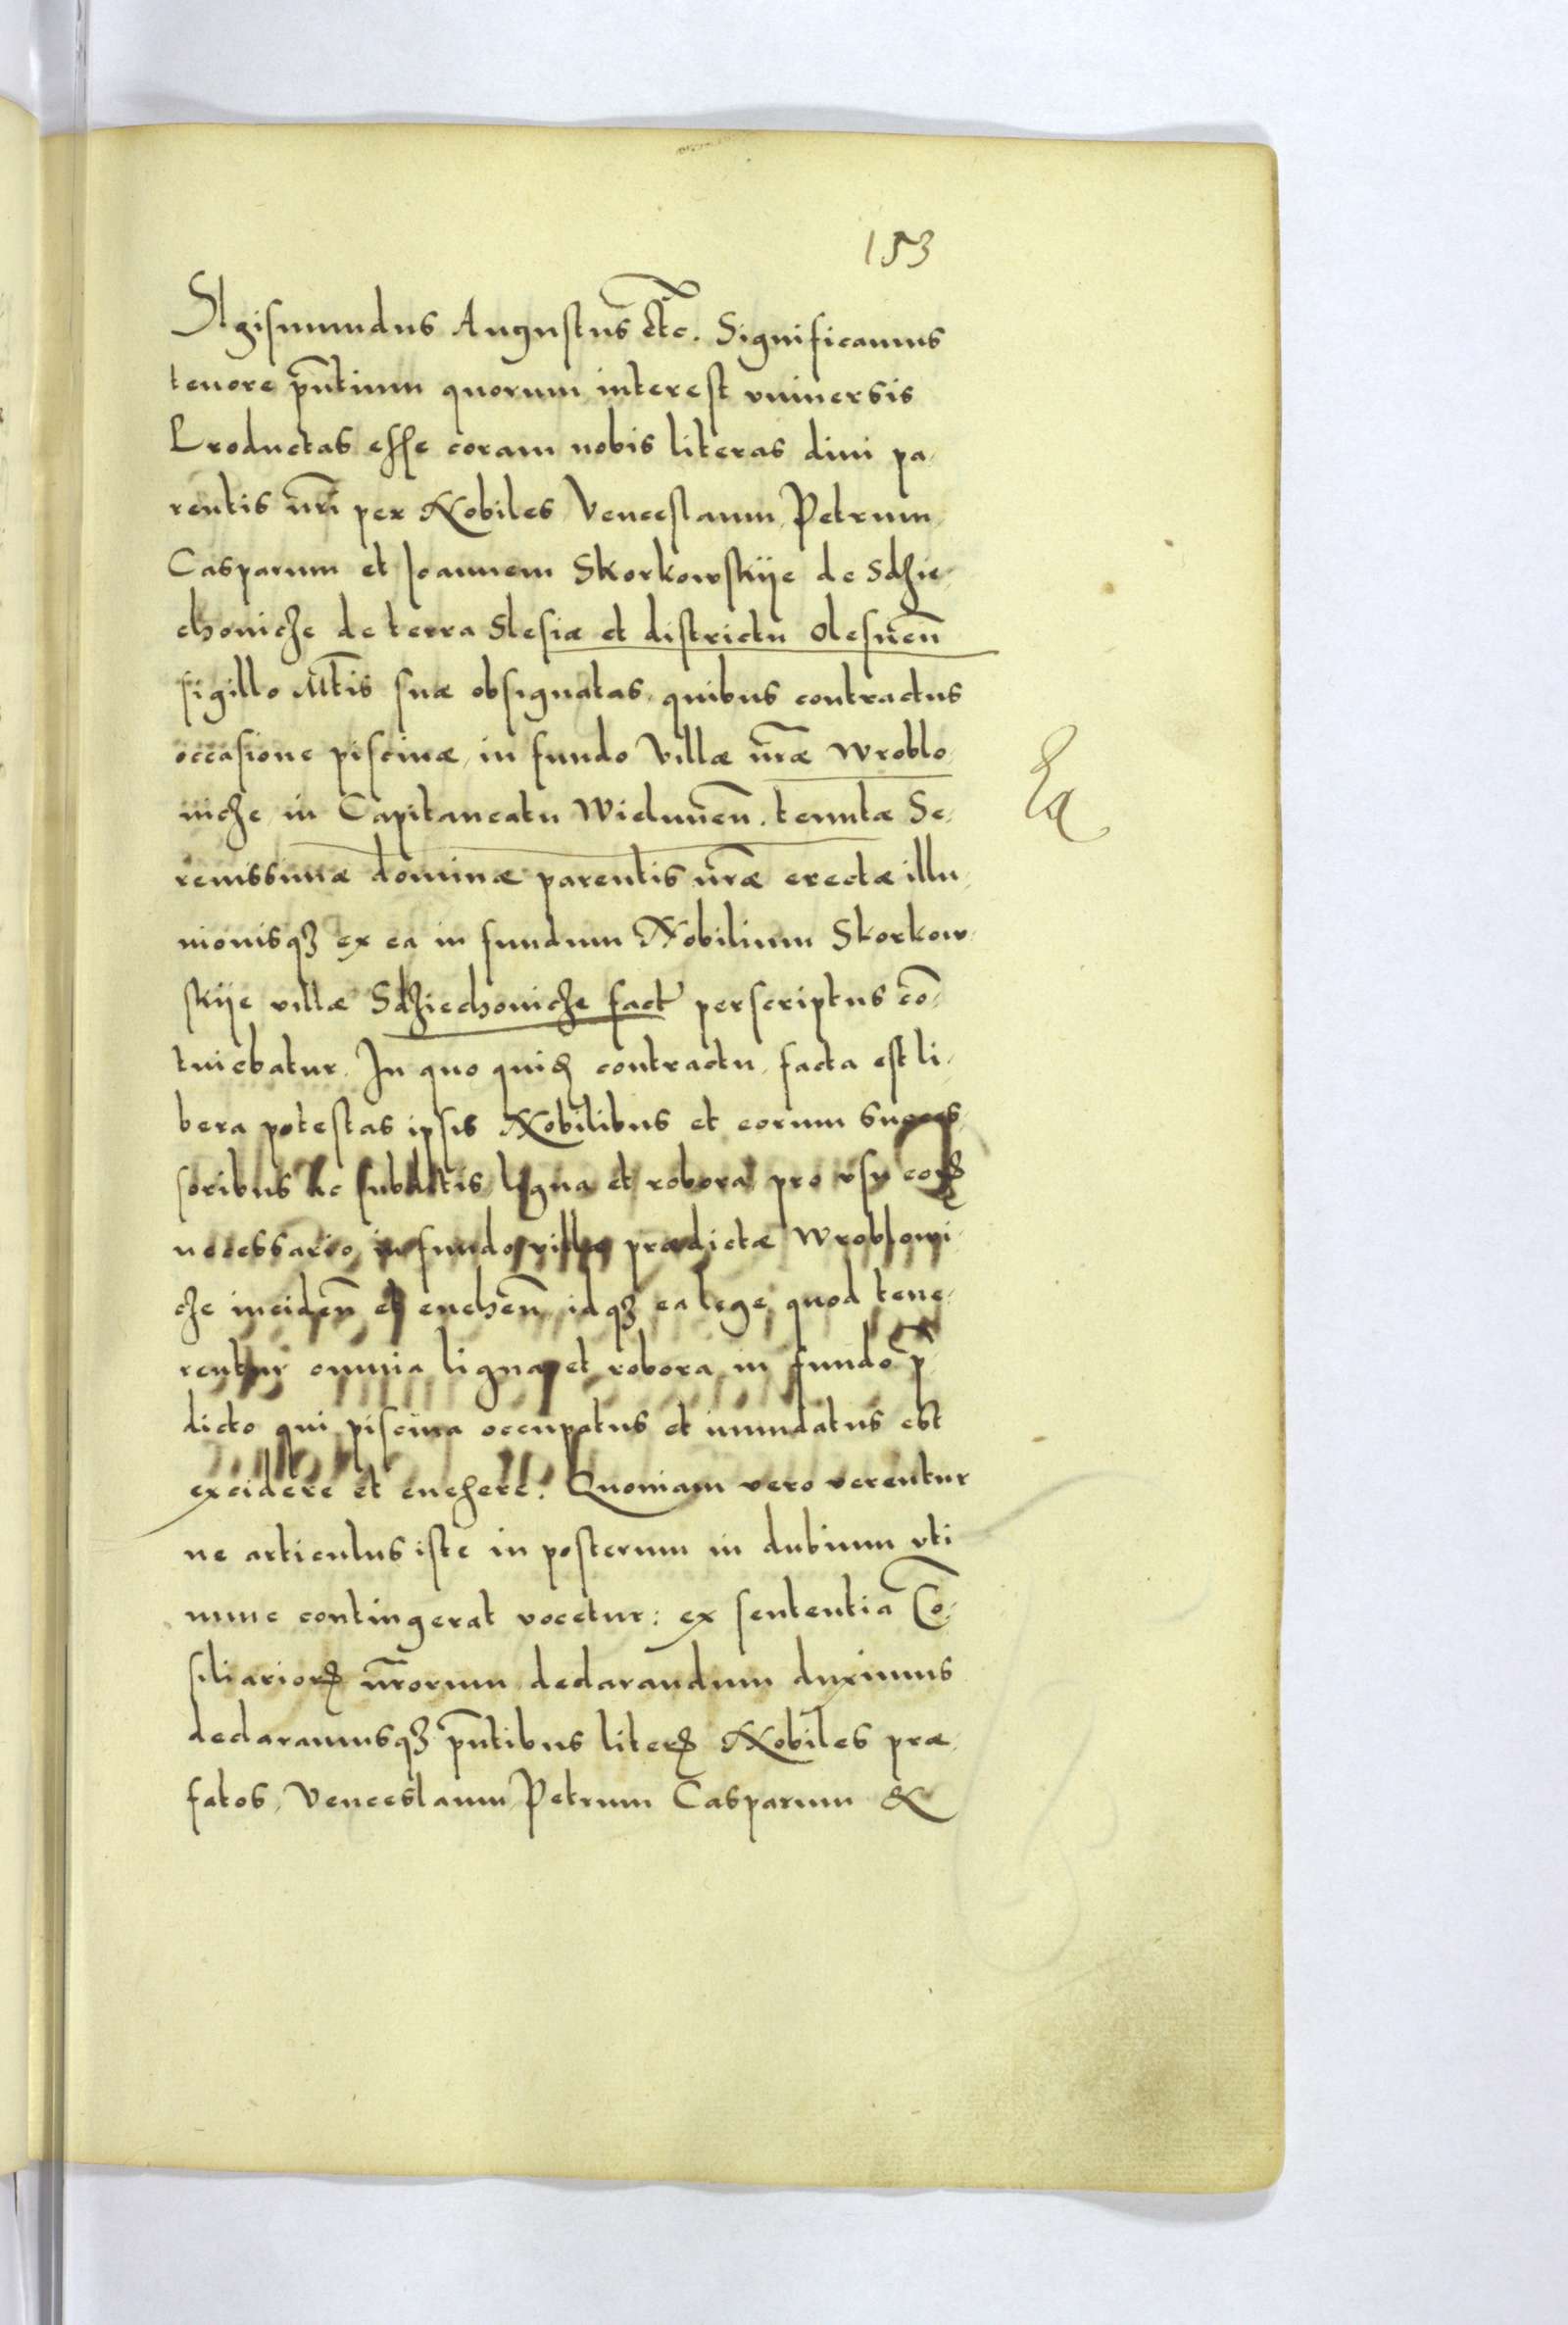 153
SIgismundus Augustus Etc. Significamus
tenore pñtium quorum interest vniuersis
Productas esse coram nobis literas diui pa-
rentis nr̃i per Nobiles Venceslaum, Petrum,
Casparum et Joannem Skorkowskije de Sdzie-
choniche de terra Slesiæ et districtu Olesneñ
sigillo Mt̃is suæ obsignatas, quibus contractus
occasione piscinæ, in fundo Villæ nr̃æ Wroblo-
niche, in Capitaneatu Wieluneñ. tenutæ Se-
renissimæ dominæ parentis nr̃æ erectæ illu-
uionisqз ex ea in fundum Nobilium Skorkow-
skije villæ Sdziechoniche fact' perscriptus cõ-
tuiebatur. In quo quiđ contractu, facta est li-
bera potestas ipsis Nobilibus et eorum succes-
soribus ac subditis ligna et robora pro vsu eorꝝ
necessario in fundo villæ prædictæ Wroblowi-
che incideñ et eueheñ, idqз ea lege, quod tene-
rentur omnia ligna et robora in fundo p̃-
dicto qui piscina occupatus et inundatus est
excidere et euehere. Quoniam vero verentur
ne articulus iste in posterum in dubium vti
nunc contingerat vocetur: ex sententia Cõ-
siliarioꝝ nr̃orum declarandum duximus
declaramusqз pñtibus literꝭ Nobiles præ-
fatos, Venceslaum, Petrum Casparum &